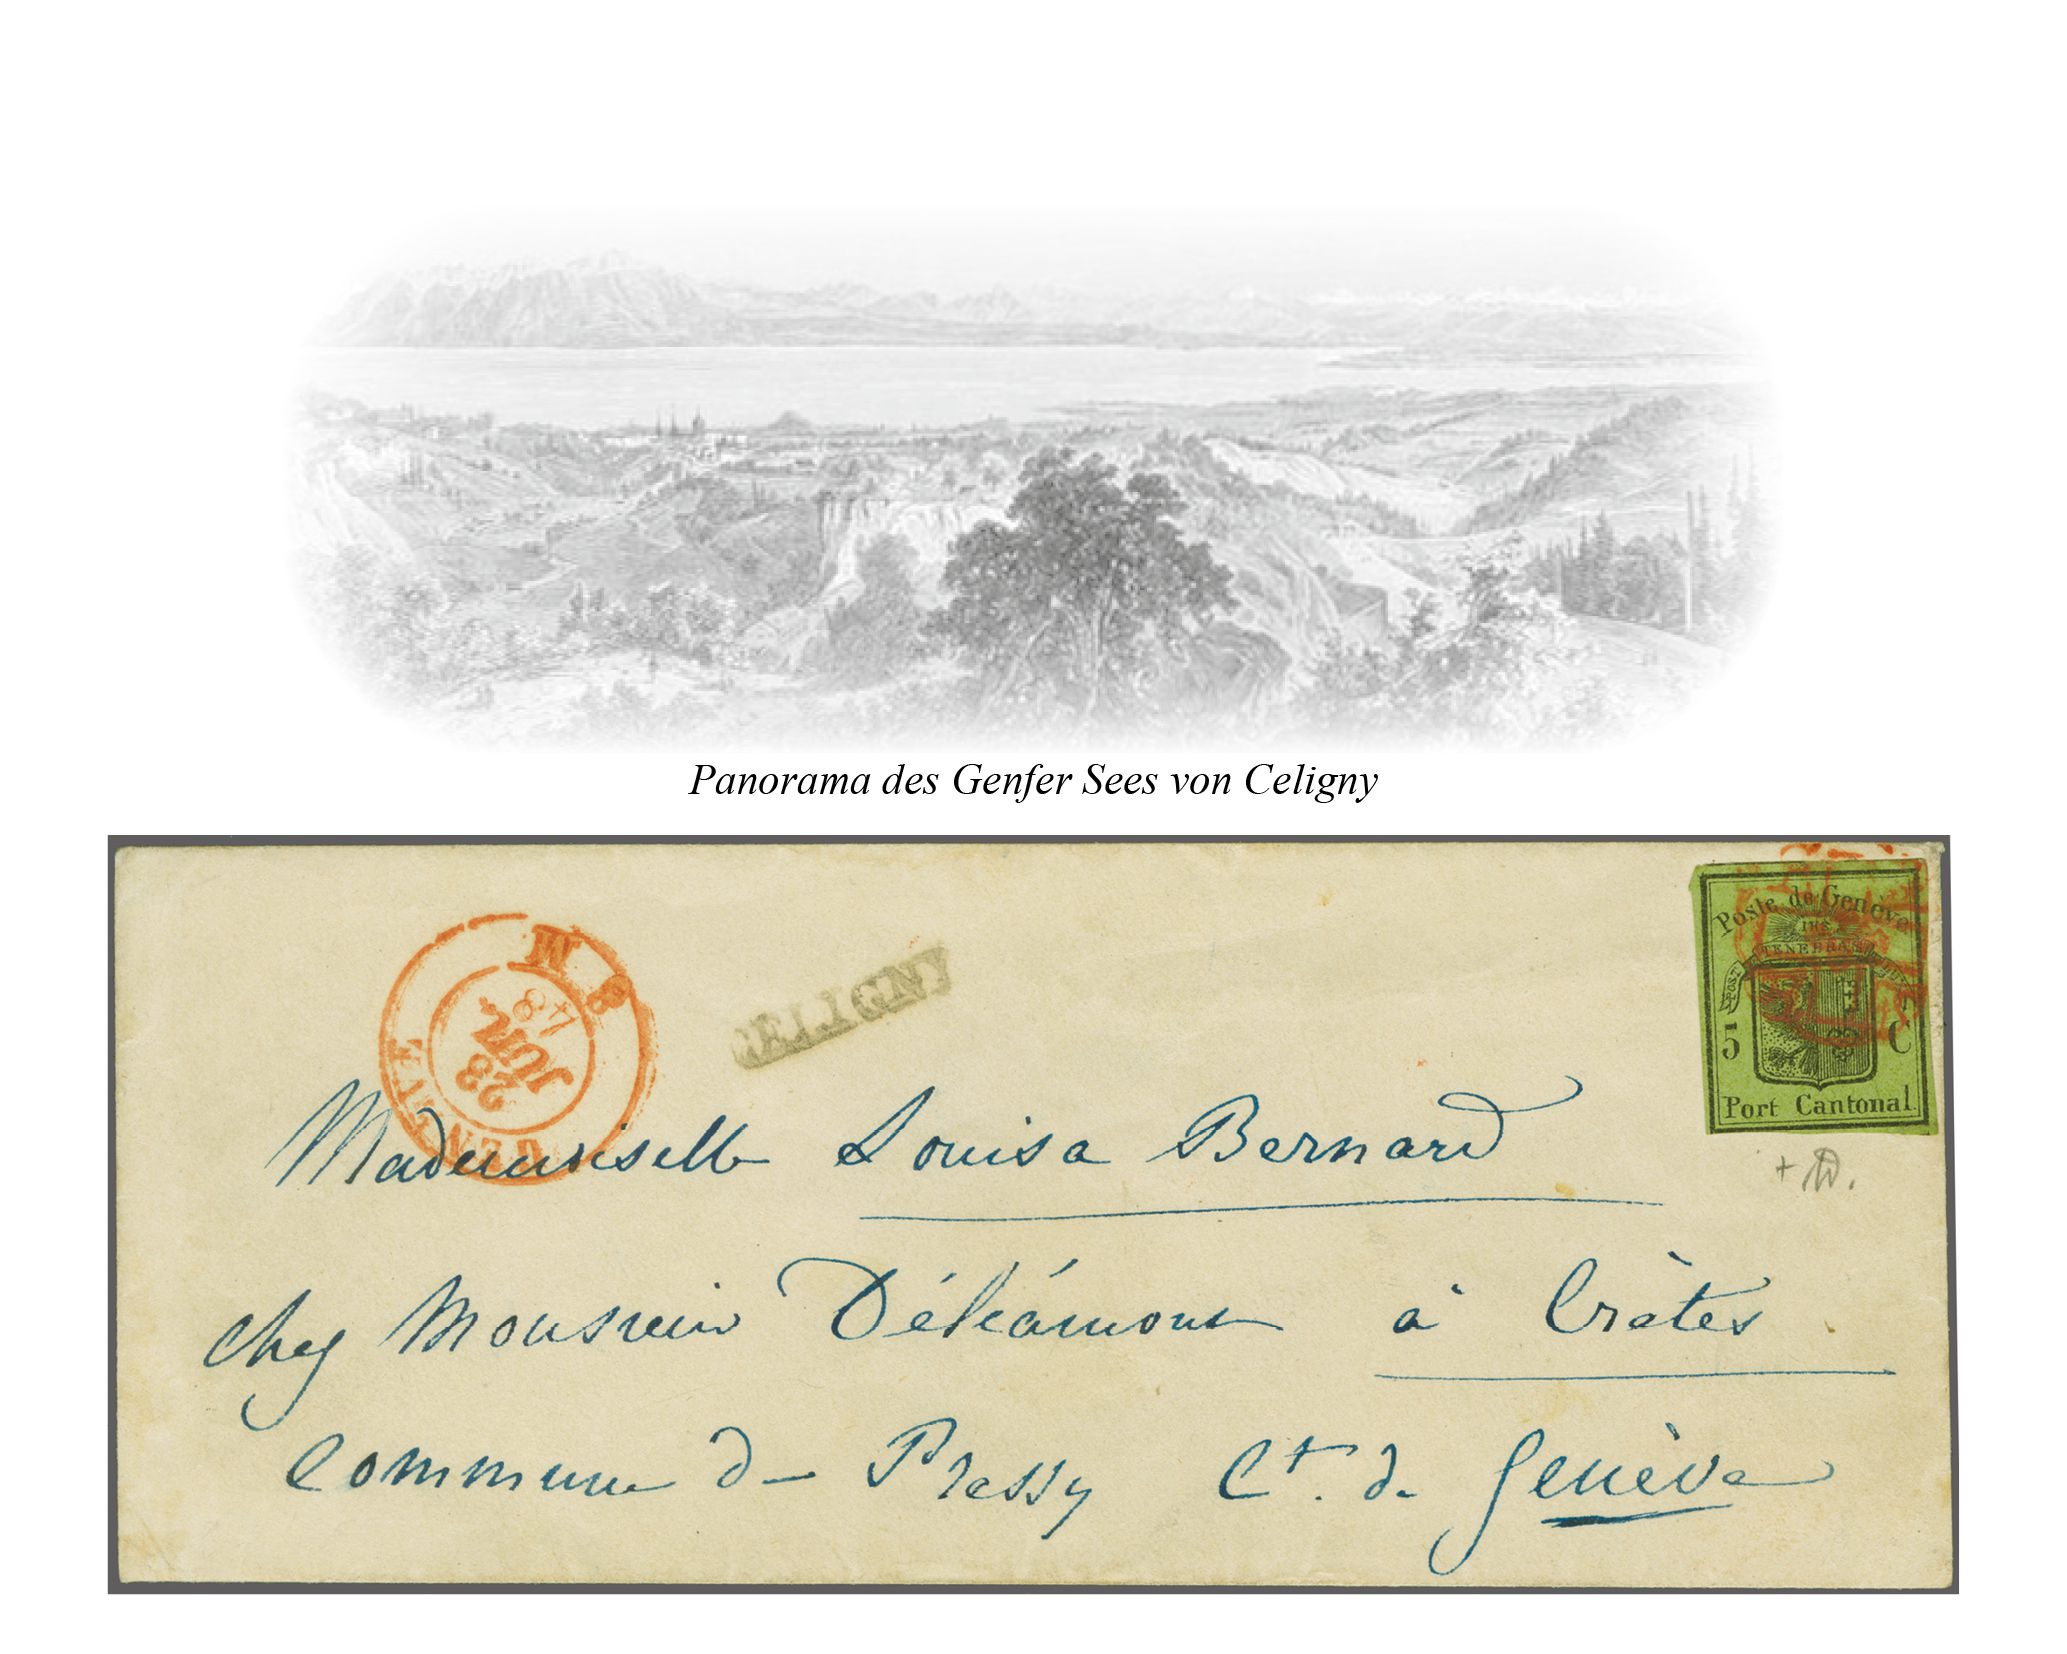 Panorama des Genfer Sees von Celigny
Poste de Genève
TENEBRAS
POST
5 C
Port Cantonal.
GENÈVE
8 M
23
JUIN
48
CELIGNY
Mademoiselle Louisa Bernard
chez Monsieur à Crètes
Commune de Pressy Ct. de Genève